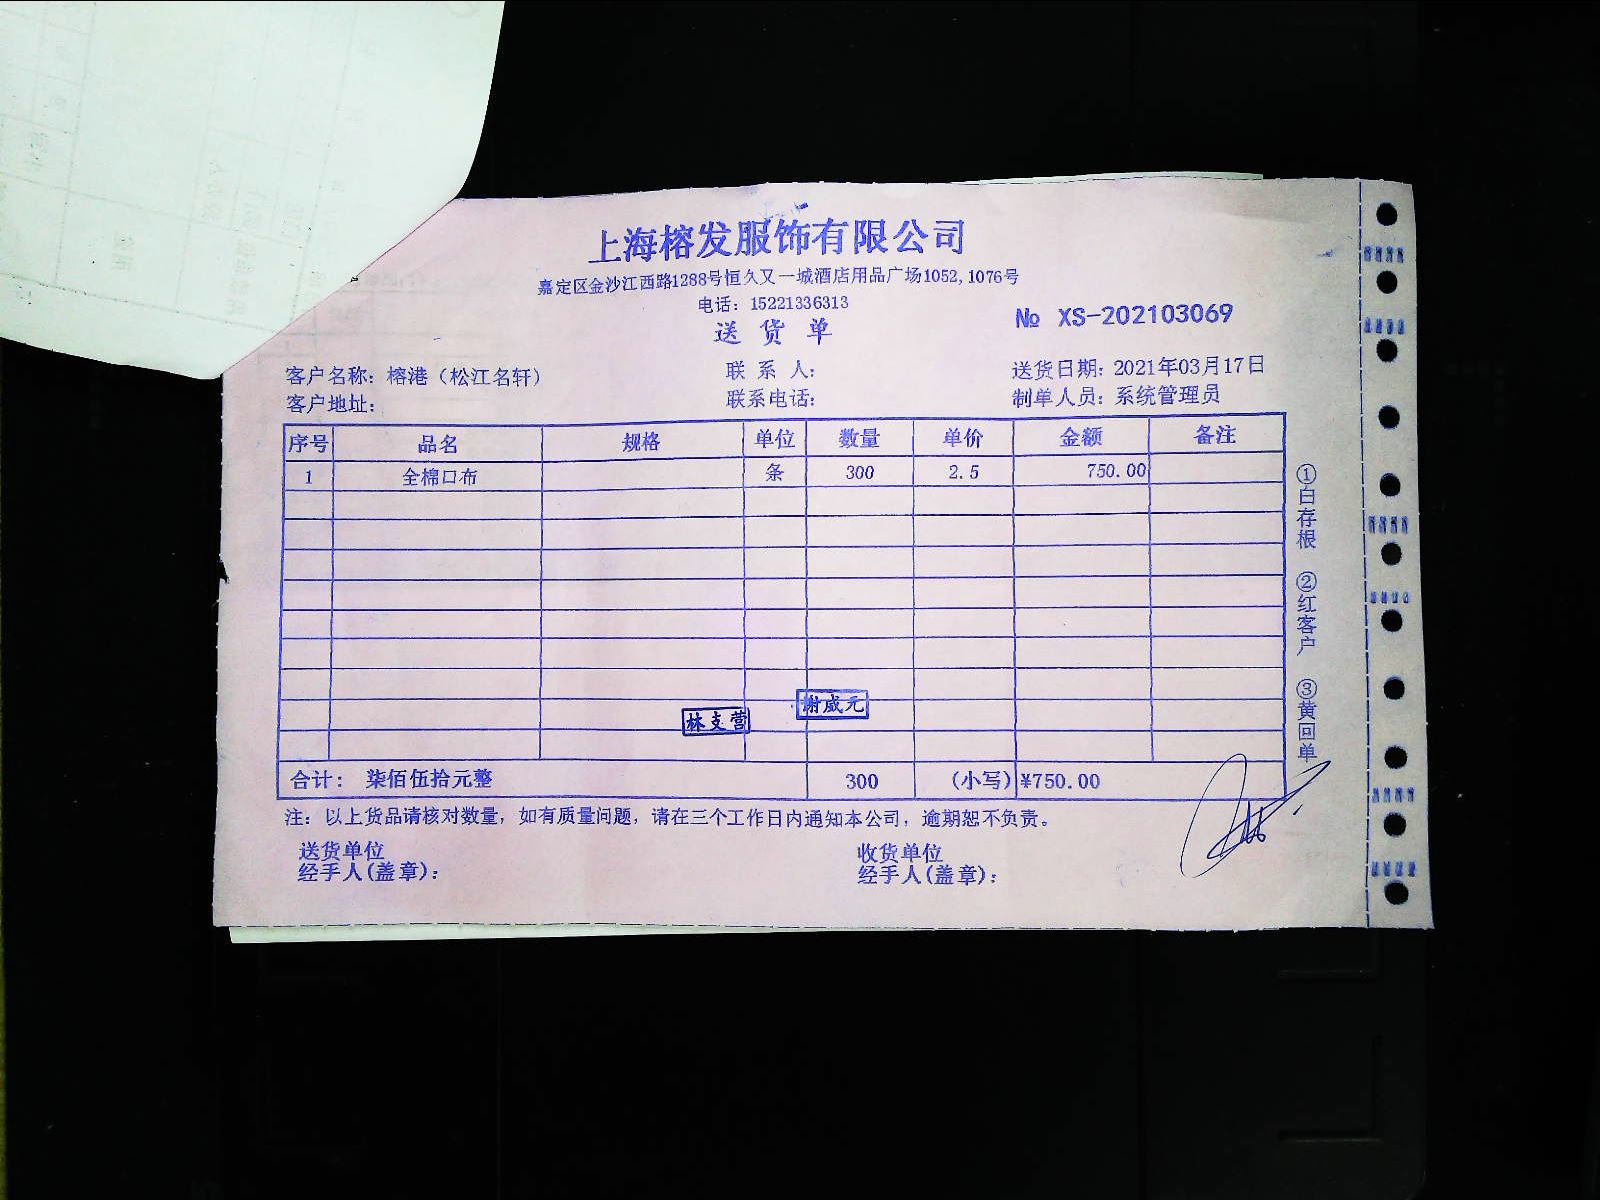 上海榕发服饰有限公司
嘉定区金沙江西路1288号恒久又一城酒店用品广场1052,1076号
电话：15221336313
送货单
№ XS-202103069
客户名称：榕港（松江名轩） 联系人： 送货日期：2021年03月17日
客户地址： 联系电话： 制单人员：系统管理员
序号 品名 规格 单位 数量 单价 金额 备注
1 全棉口布 条 300 2.5 750.00
林支营 谢威元
合计： 柒佰伍拾元整 300 (小写) ¥750.00
注：以上货品请核对数量，如有质量问题，请在三个工作日内通知本公司，逾期恕不负责。
送货单位 收货单位
经手人(盖章)： 经手人(盖章)：
①白存根 ②红客户 ③黄回单